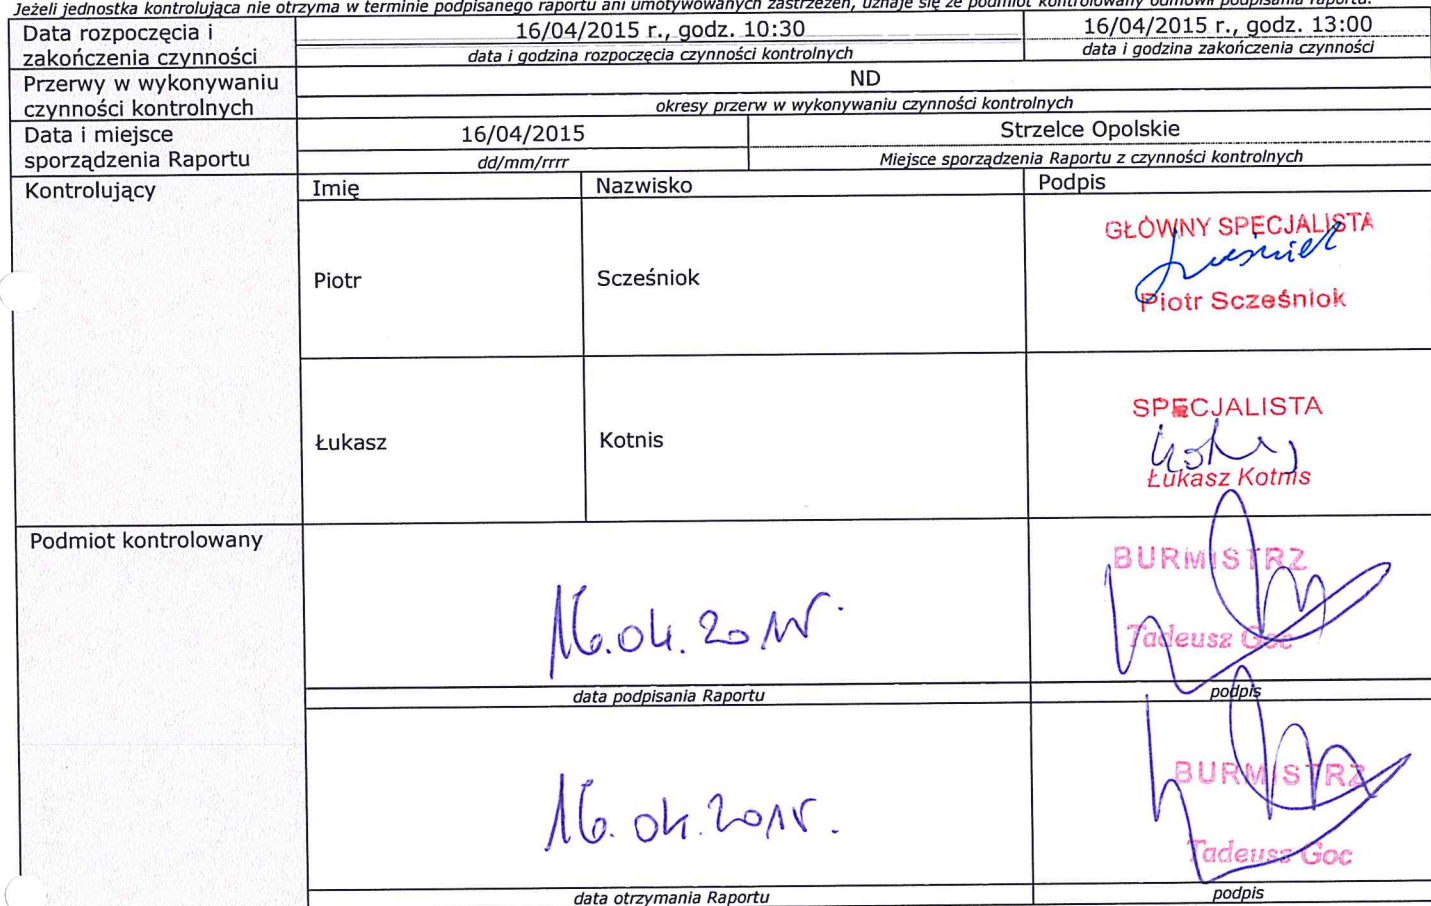 Jeżeli jednostka kontrolująca nie otrzyma w terminie podpisanego raportu ani umotywowanych zastrzeżeń, uznaje się że podmiot kontrolowany odmówił podpisania raportu.
Data rozpoczęcia i
zakończenia czynności
16/04/2015 r., godz. 10:30
data i godzina rozpoczęcia czynności kontrolnych
16/04/2015 r., godz. 13:00
data i godzina zakończenia czynności
Przerwy w wykonywaniu
czynności kontrolnych
ND
okresy przerw w wykonywaniu czynności kontrolnych
Data i miejsce
sporządzenia Raportu
16/04/2015
dd/mm/rrrr
Strzelce Opolskie
Miejsce sporządzenia Raportu z czynności kontrolnych
Kontrolujący
Imię
Nazwisko
Podpis
Piotr
Scześniok
GŁÓWNY SPECJALISTA
Piotr Scześniok
Łukasz
Kotnis
SPECJALISTA
Łukasz Kotnis
Podmiot kontrolowany
16.04.2015r.
BURMISTRZ
Tadeusz Goc
data podpisania Raportu
podpis
16.04.2015r.
BURMISTRZ
Tadeusz Goc
data otrzymania Raportu
podpis